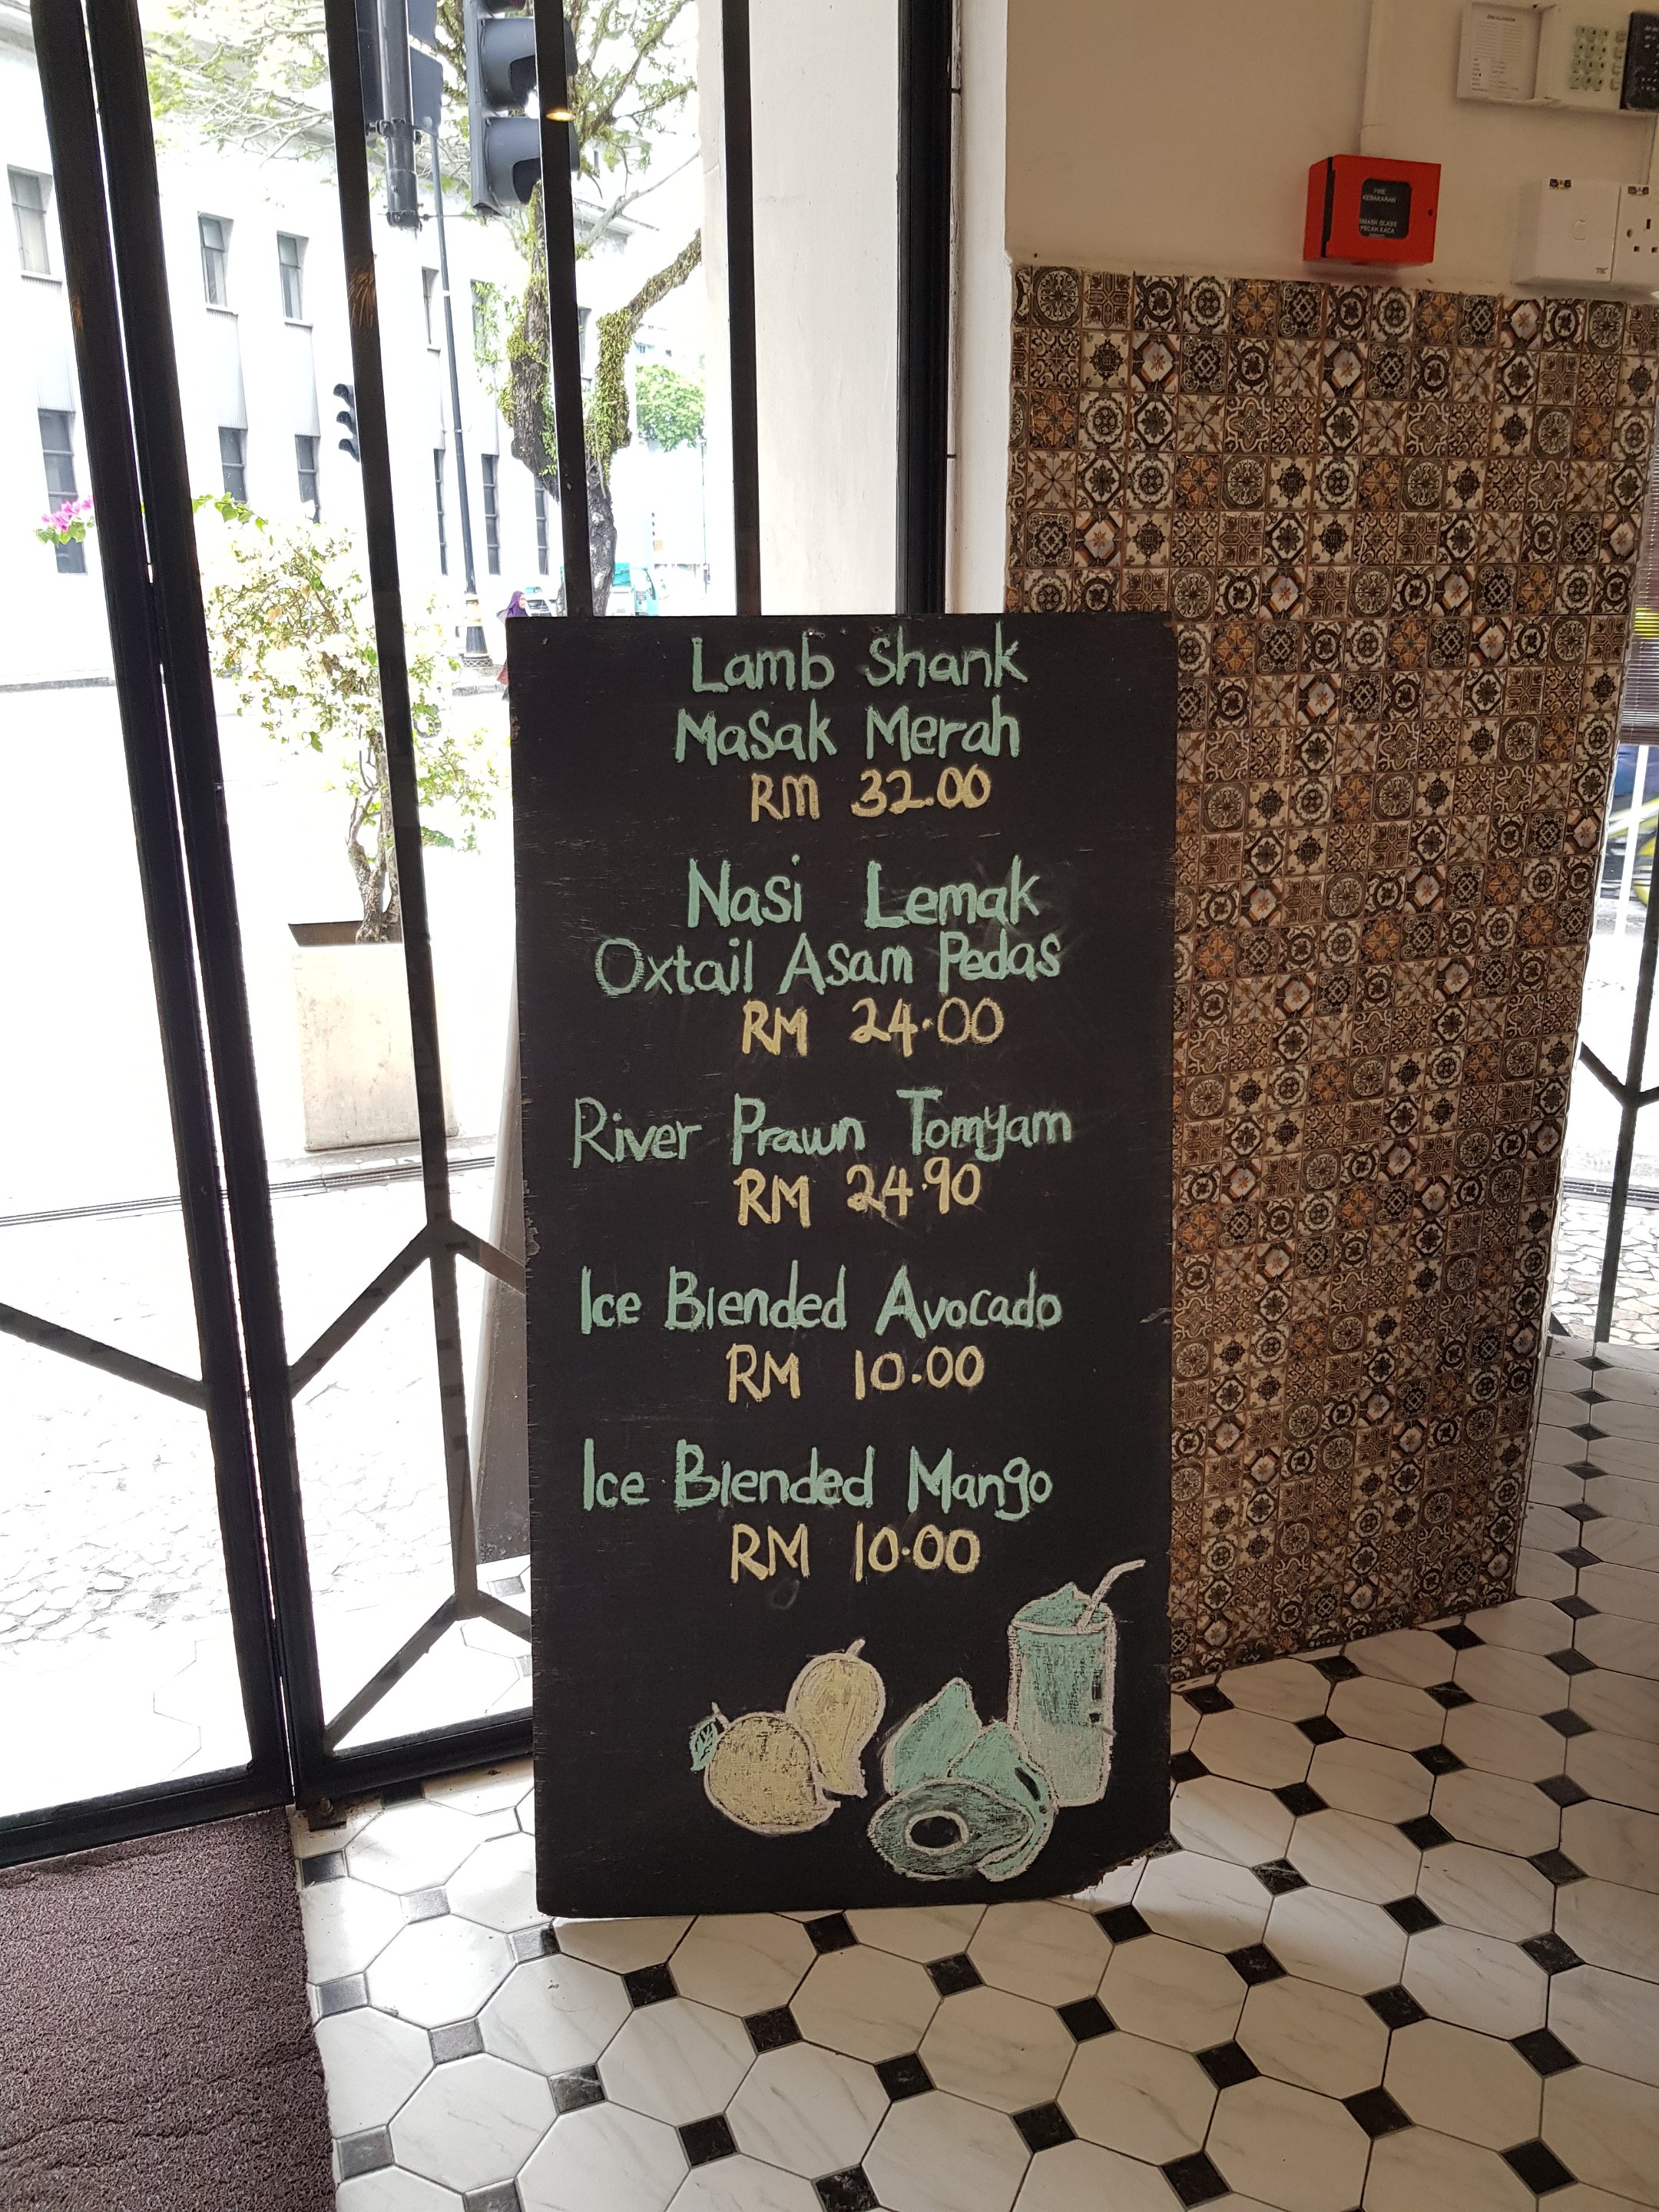 Lamb Shank
Masak Merah
RM 32.00
Nasi Lemak
Oxtail Asam Pedas
RM 24.00
River Prawn Tomyam
RM 24.90
Ice Blended Avocado
RM 10.00
Ice Blended Mango
RM 10.00
FIRE
KEBAKARAN
SMASH GLASS
PECAH KACA